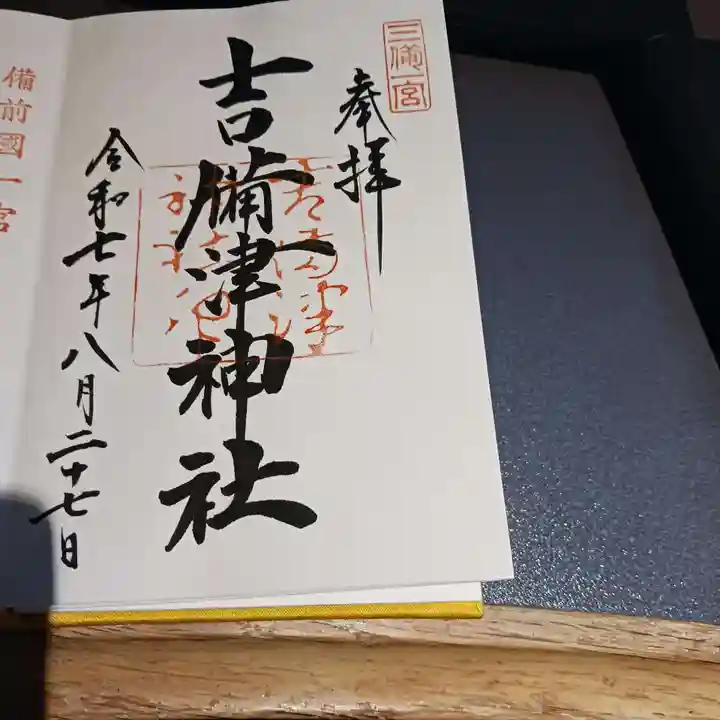 三備一宮
奉拝
吉備津神社
令和七年八月二十七日
備前國一宮